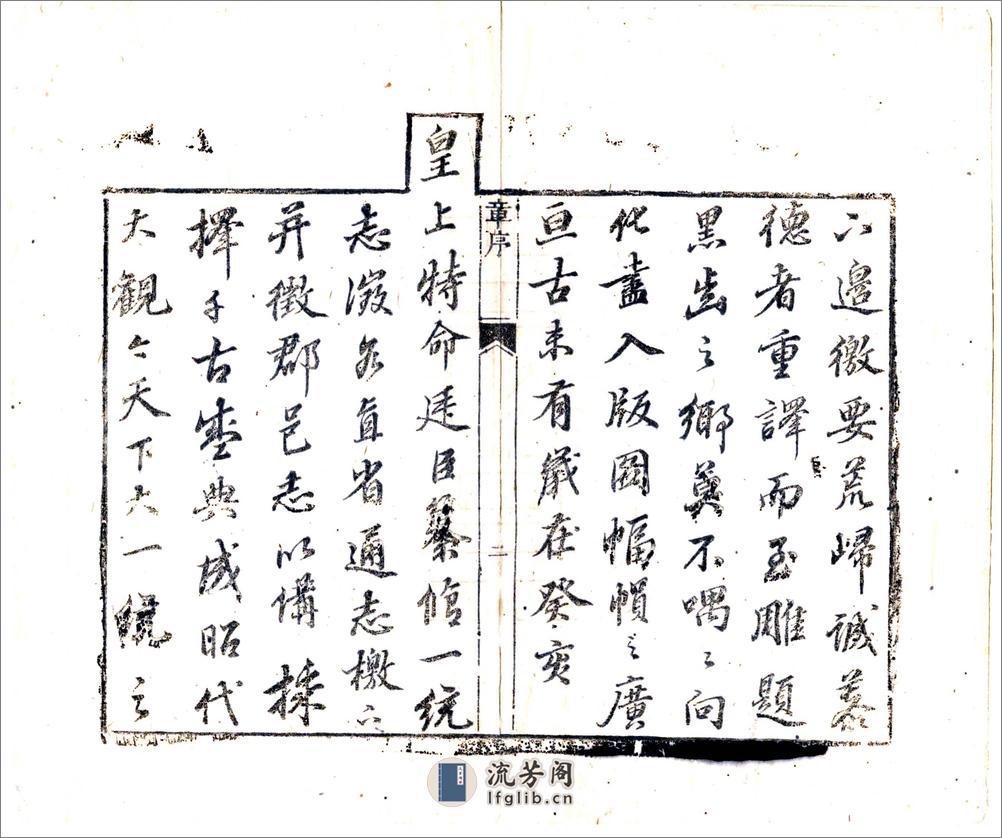 下邊徼要荒歸誠慕
德者重譯而至雕題
黑齒之鄉莫不喁〻向
化盡入版圖幅幀之廣
亘古未有歲在癸亥
章序
二
皇上特命廷臣纂修一統
志直省通志檄下
并徵郡邑志以備採
擇千古盛典成昭代
大觀今天下大一統之
流芳阁
lfglib.cn